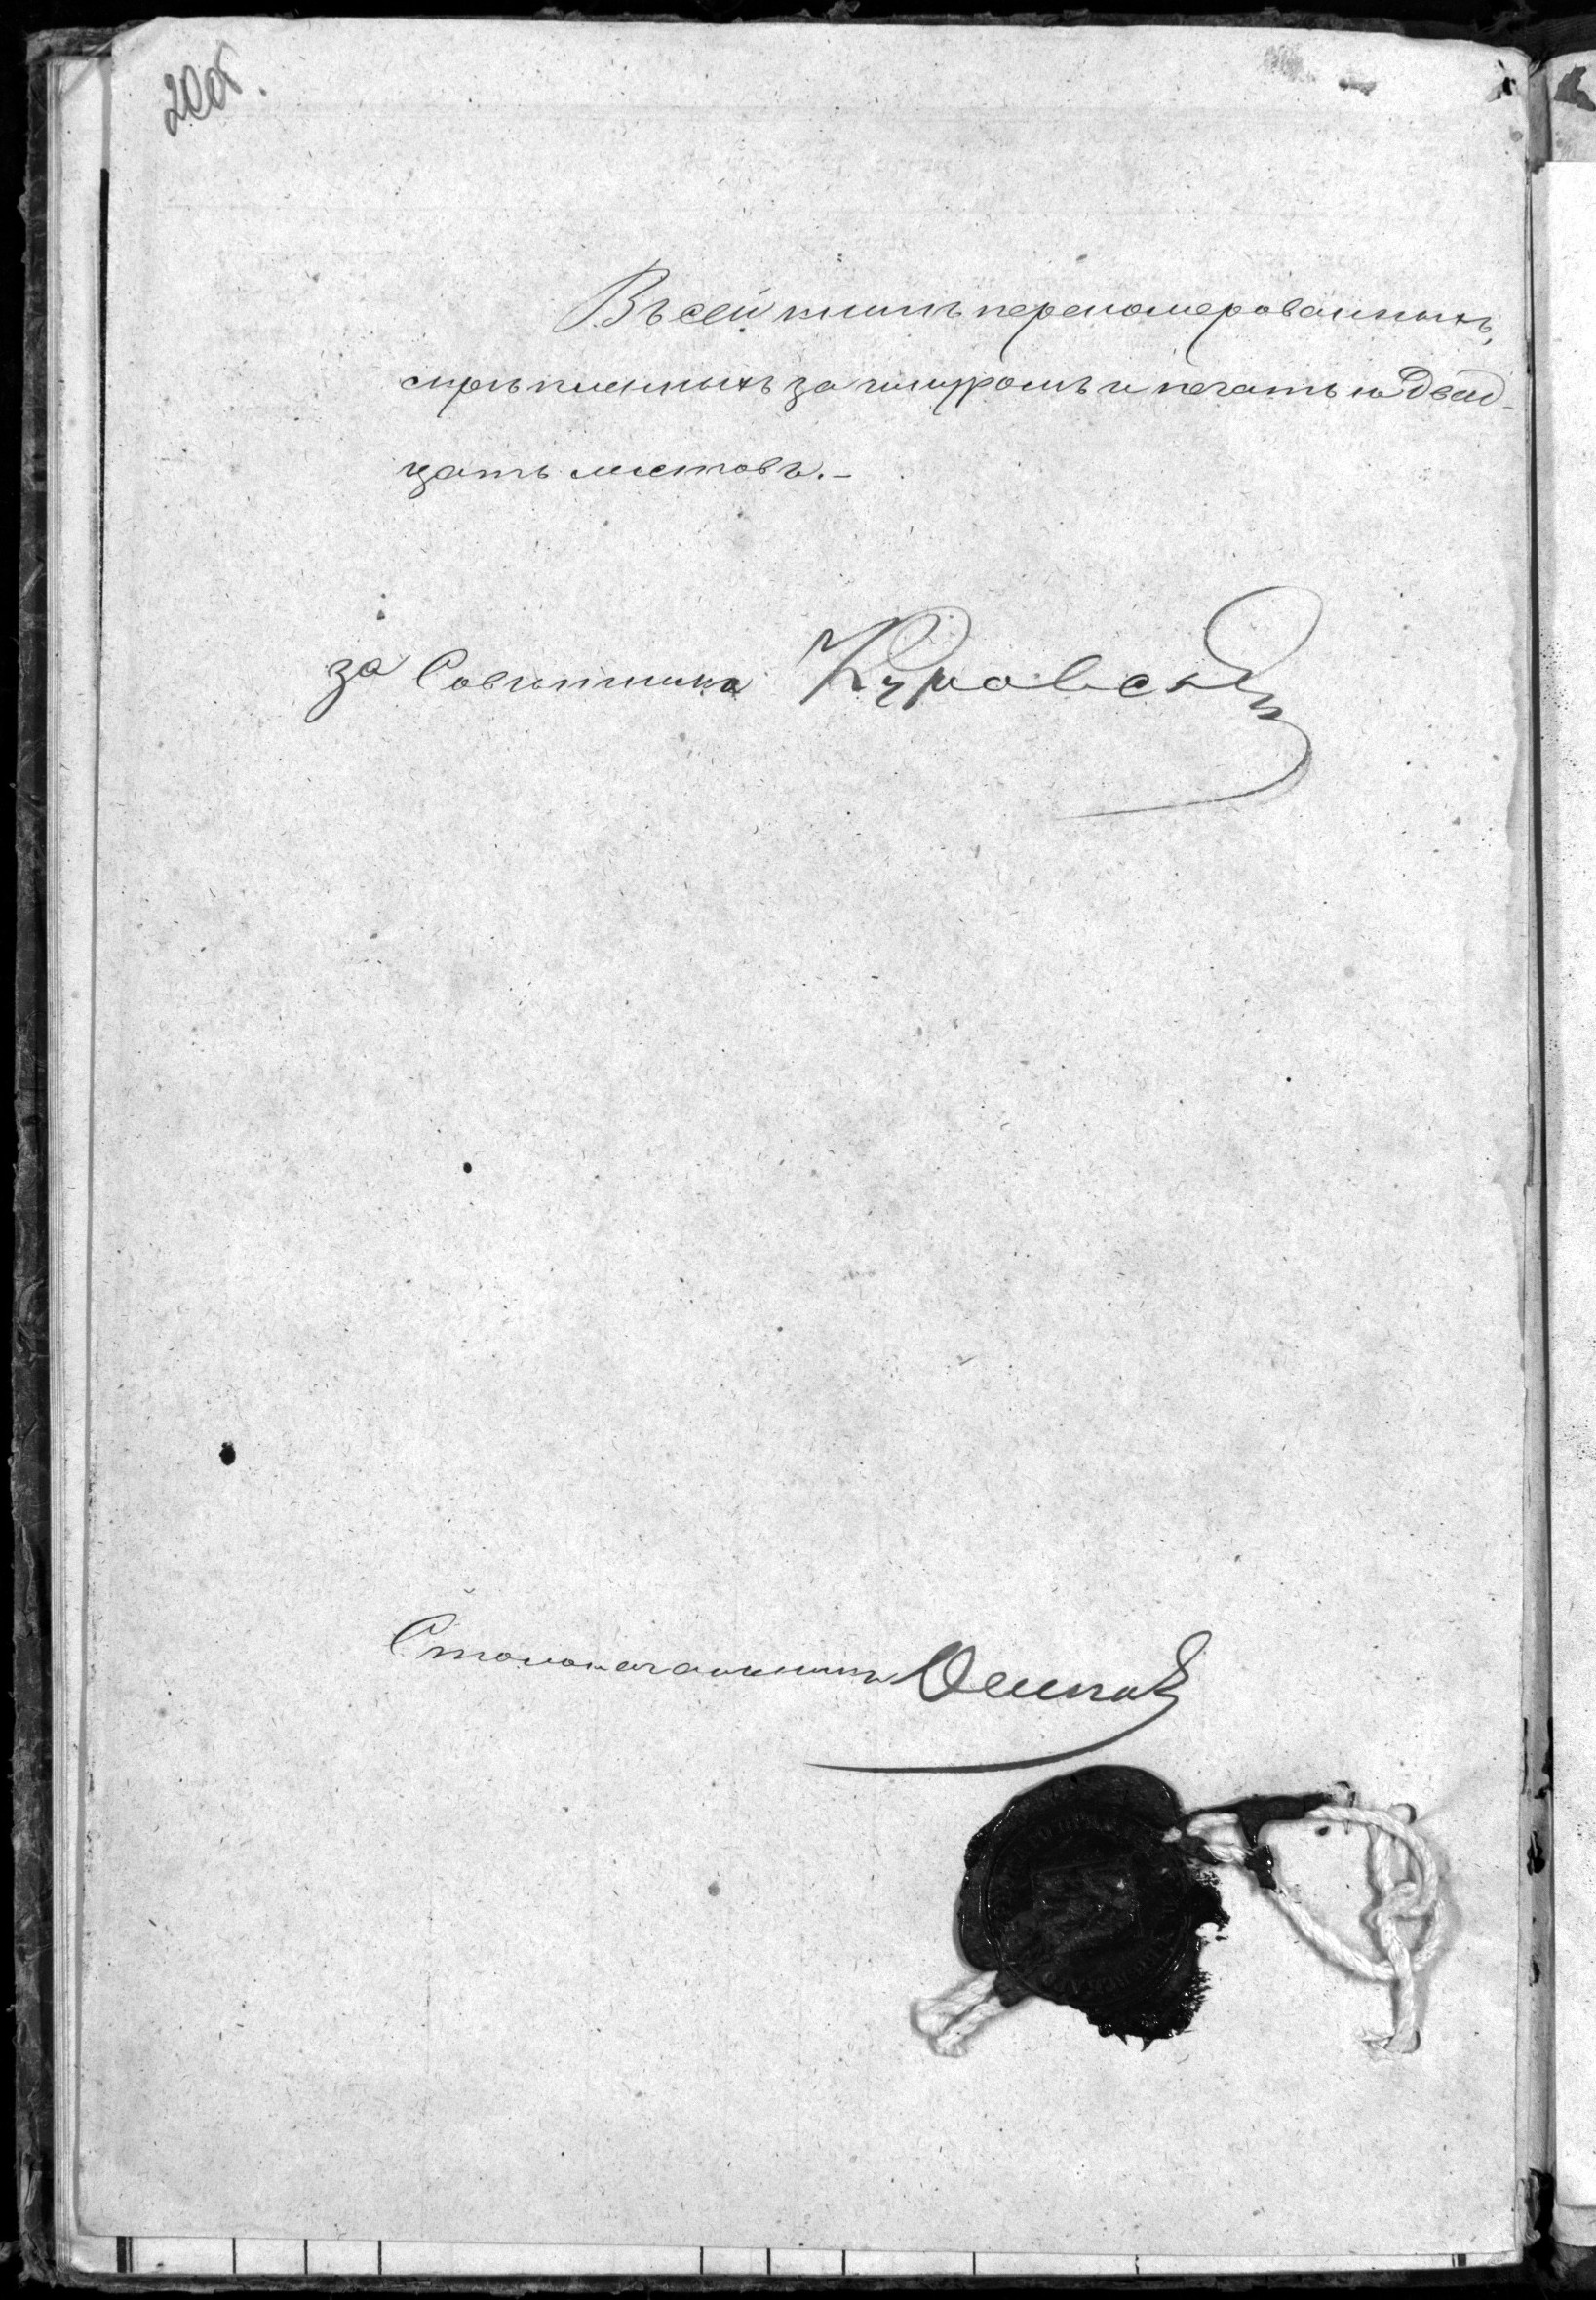 20об.
Въ сей книгѣ переномерованныхъ,
скрѣпленныхъ за шнуромъ и печатью Двад-
цать листовъ.-
за Совѣтника
Столоначальникъ